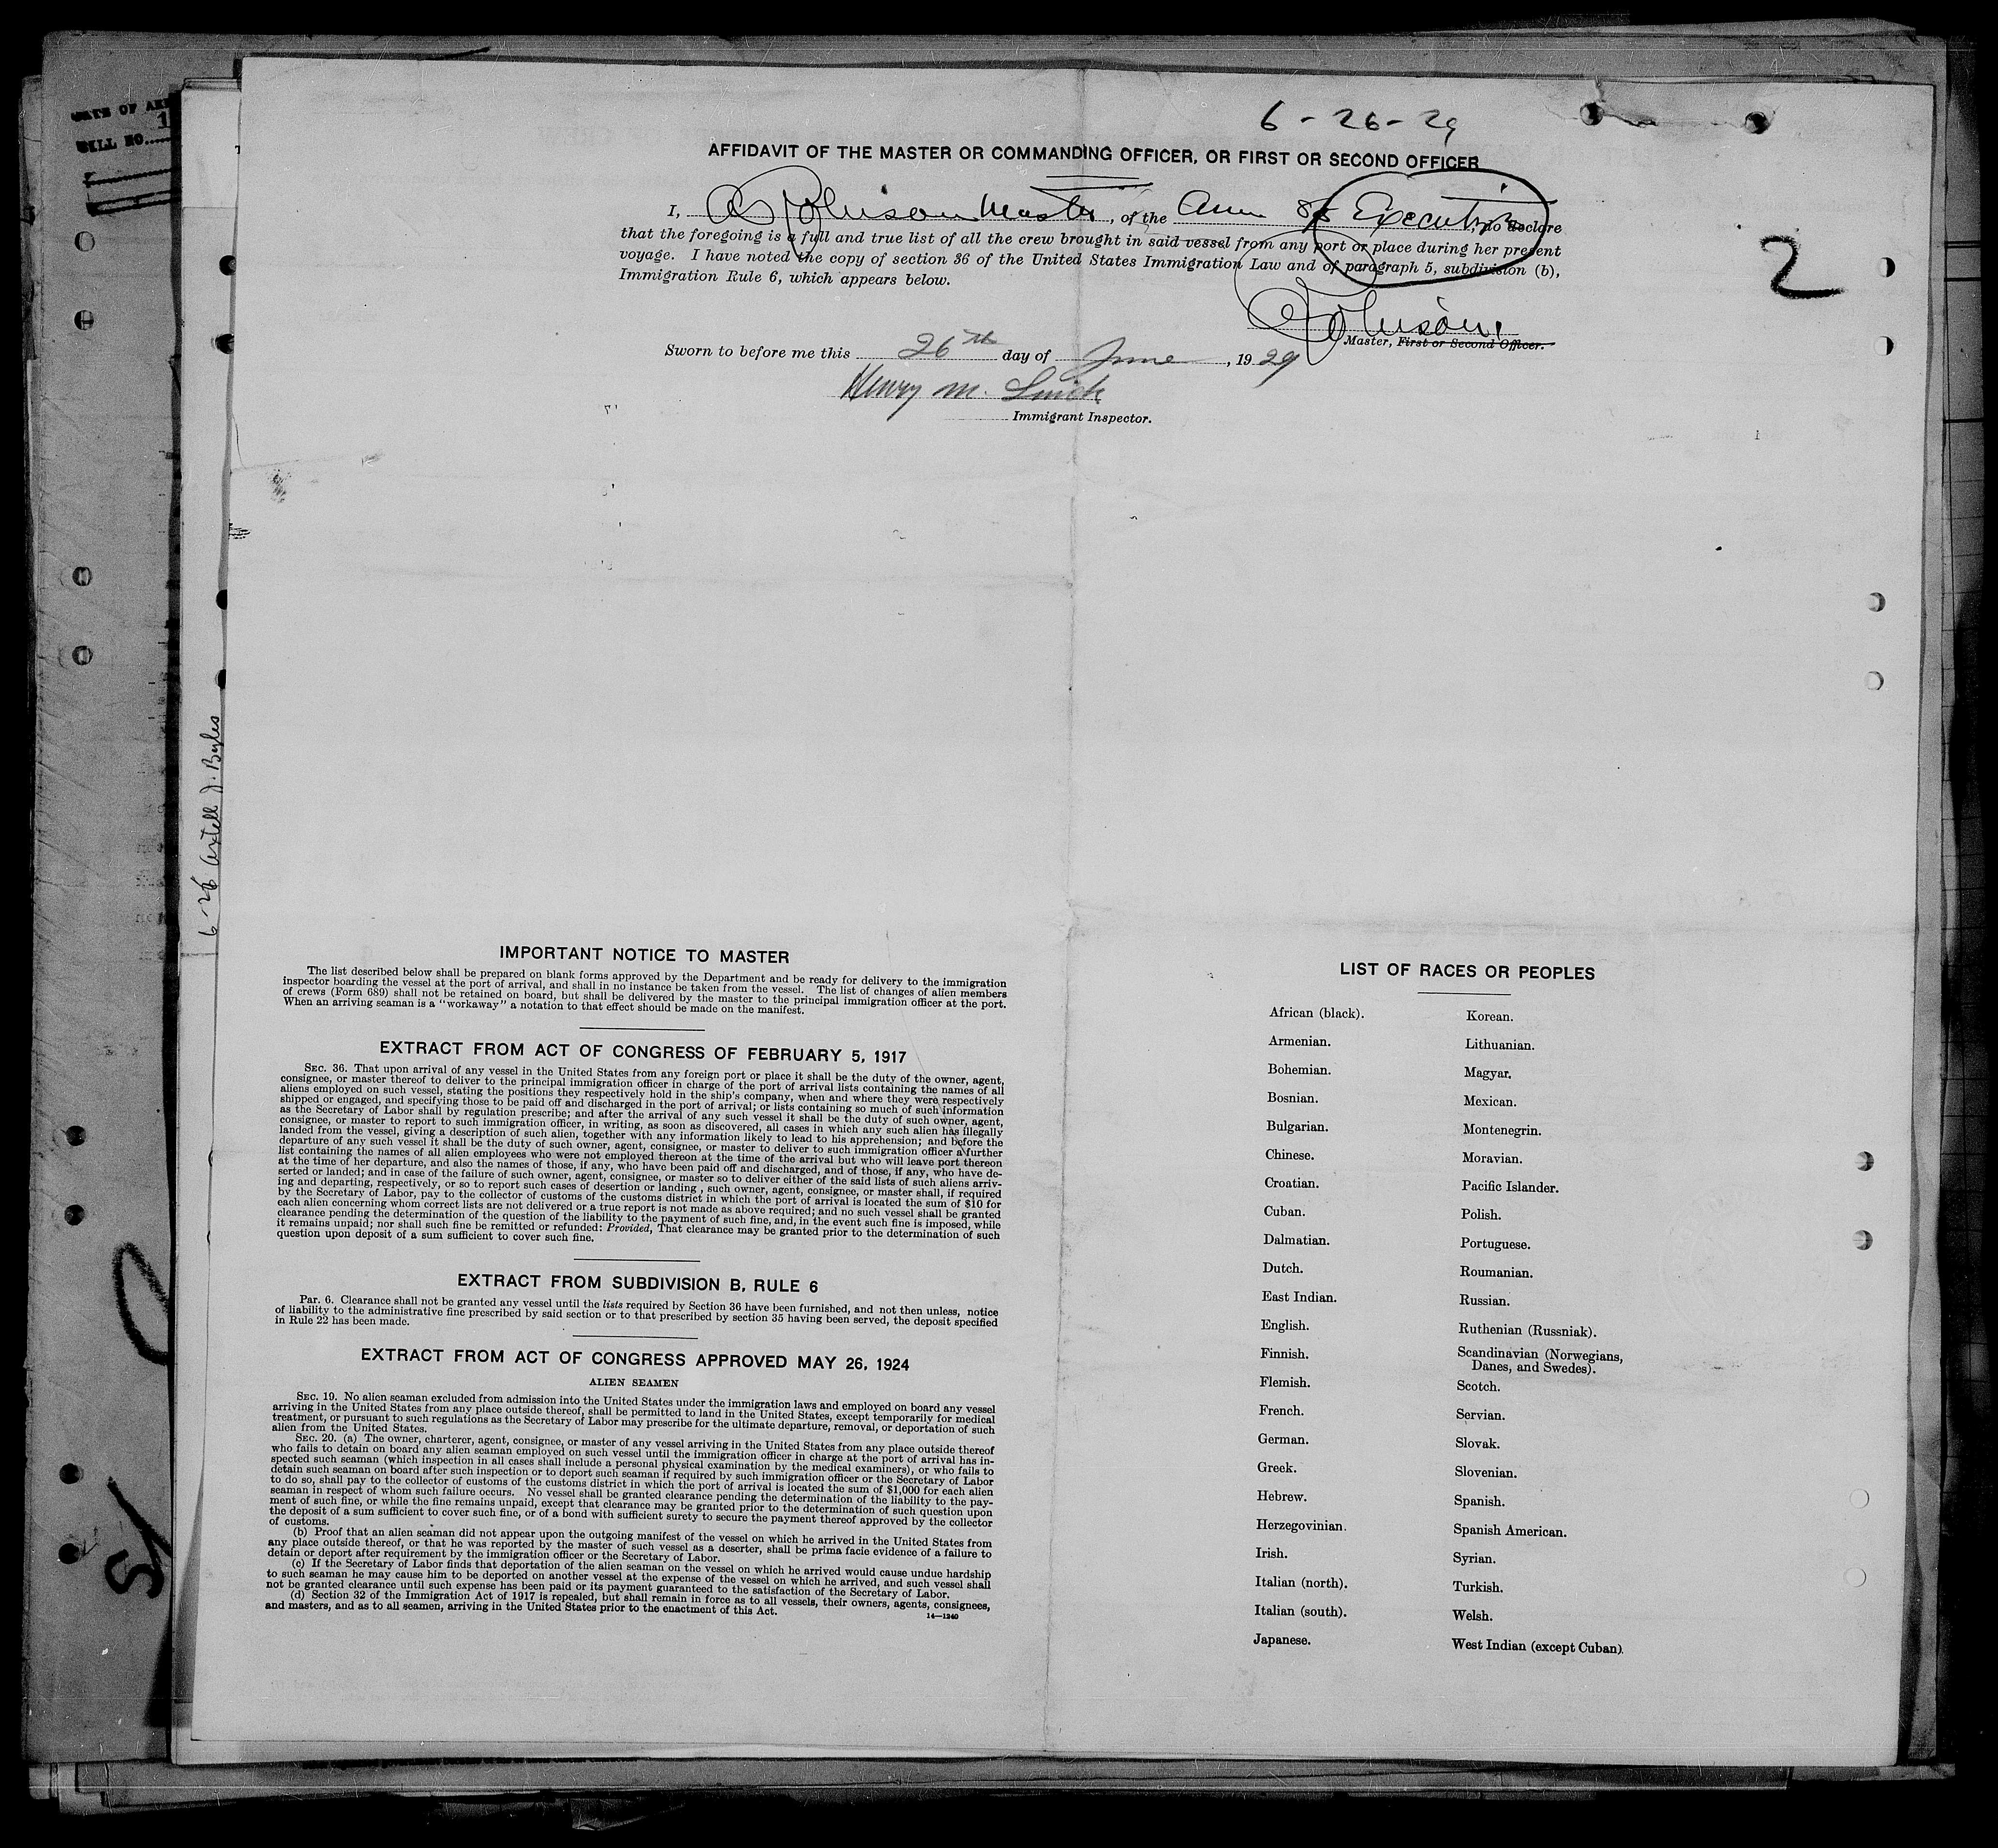 6 - 26 - 29
AFFIDAVIT OF THE MASTER OR COMMANDING OFFICER, OR FIRST OR SECOND OFFICER
I, Johnson Master, of the Am SS Executive, do declare
that the foregoing is a full and true list of all the crew brought in said vessel from any port or place during her present
voyage. I have noted the copy of section 36 of the United States Immigration Law and of paragraph 5, subdivision (b),
Immigration Rule 6, which appears below.
2
Johnson
Master, First or Second Officer.
Sworn to before me this 26th day of June, 1929
Henry M.
Immigrant Inspector.
6-26 Axtell J. Byles
IMPORTANT NOTICE TO MASTER
The list described below shall be prepared on blank forms approved by the Department and be ready for delivery to the immigration
inspector boarding the vessel at the port of arrival, and shall in no instance be taken from the vessel. The list of changes of alien members
of crews (Form 689) shall not be retained on board, but shall be delivered by the master to the principal immigration officer at the port.
When an arriving seaman is a "workaway" a notation to that effect should be made on the manifest.
EXTRACT FROM ACT OF CONGRESS OF FEBRUARY 5, 1917
SEC. 36. That upon arrival of any vessel in the United States from any foreign port or place it shall be the duty of the owner, agent,
consignee, or master thereof to deliver to the principal immigration officer in charge of the port of arrival lists containing the names of all
aliens employed on such vessel, stating the positions they respectively hold in the ship's company, when and where they were respectively
shipped or engaged, and specifying those to be paid off and discharged in the port of arrival; or lists containing so much of such information
as the Secretary of Labor shall by regulation prescribe; and after the arrival of any such vessel it shall be the duty of such owner, agent,
consignee, or master to report to such immigration officer, in writing, as soon as discovered, all cases in which any such alien has illegally
landed from the vessel, giving a description of such alien, together with any information likely to lead to his apprehension; and before the
departure of any such vessel it shall be the duty of such owner, agent, consignee, or master to deliver to such immigration officer a further
list containing the names of all alien employees who were not employed thereon at the time of the arrival but who will leave port thereon
at the time of her departure, and also the names of those, if any, who have been paid off and discharged, and of those, if any, who have de-
serted or landed; and in case of the failure of such owner, agent, consignee, or master so to deliver either of the said lists of such aliens arriv-
ing and departing, respectively, or so to report such cases of desertion or landing , such owner, agent, consignee, or master shall, if required
by the Secretary of Labor, pay to the collector of customs of the customs district in which the port of arrival is located the sum of $10 for
each alien concerning whom correct lists are not delivered or a true report is not made as above required; and no such vessel shall be granted
clearance pending the determination of the question of the liability to the payment of such fine, and, in the event such fine is imposed, while
it remains unpaid; nor shall such fine be remitted or refunded: Provided, That clearance may be granted prior to the determination of such
question upon deposit of a sum sufficient to cover such fine.
EXTRACT FROM SUBDIVISION B, RULE 6
Par. 6. Clearance shall not be granted any vessel until the lists required by Section 36 have been furnished, and not then unless, notice
of liability to the administrative fine prescribed by said section or to that prescribed by section 35 having been served, the deposit specified
in Rule 22 has been made.
EXTRACT FROM ACT OF CONGRESS APPROVED MAY 26, 1924
ALIEN SEAMEN
SEC. 19. No alien seaman excluded from admission into the United States under the immigration laws and employed on board any vessel
arriving in the United States from any place outside thereof, shall be permitted to land in the United States, except temporarily for medical
treatment, or pursuant to such regulations as the Secretary of Labor may prescribe for the ultimate departure, removal, or deportation of such
alien from the United States.
SEC. 20. (a) The owner, charterer, agent, consignee, or master of any vessel arriving in the United States from any place outside thereof
who fails to detain on board any alien seaman employed on such vessel until the immigration officer in charge at the port of arrival has in-
spected such seaman (which inspection in all cases shall include a personal physical examination by the medical examiners), or who fails to
detain such seaman on board after such inspection or to deport such seaman if required by such immigration officer or the Secretary of Labor
to do so, shall pay to the collector of customs of the customs district in which the port of arrival is located the sum of $1,000 for each alien
seaman in respect of whom such failure occurs. No vessel shall be granted clearance pending the determination of the liability to the pay-
ment of such fine, or while the fine remains unpaid, except that clearance may be granted prior to the determination of such question upon
the deposit of a sum sufficient to cover such fine, or of a bond with sufficient surety to secure the payment thereof approved by the collector
of customs.
(b) Proof that an alien seaman did not appear upon the outgoing manifest of the vessel on which he arrived in the United States from
any place outside thereof, or that he was reported by the master of such vessel as a deserter, shall be prima facie evidence of a failure to
detain or deport after requirement by the immigration officer or the Secretary of Labor.
(c) If the Secretary of Labor finds that deportation of the alien seaman on the vessel on which he arrived would cause undue hardship
to such seaman he may cause him to be deported on another vessel at the expense of the vessel on which he arrived, and such vessel shall
not be granted clearance until such expense has been paid or its payment guaranteed to the satisfaction of the Secretary of Labor.
(d) Section 32 of the Immigration Act of 1917 is repealed, but shall remain in force as to all vessels, their owners, agents, consignees,
and masters, and as to all seamen, arriving in the United States prior to the enactment of this Act.
14—1240
LIST OF RACES OR PEOPLES
African (black).
Armenian.
Bohemian.
Bosnian.
Bulgarian.
Chinese.
Croatian.
Cuban.
Dalmatian.
Dutch.
East Indian.
English.
Finnish.
Flemish.
French.
German.
Greek.
Hebrew.
Herzegovinian.
Irish.
Italian (north).
Italian (south).
Japanese.
Korean.
Lithuanian.
Magyar.
Mexican.
Montenegrin.
Moravian.
Pacific Islander.
Polish.
Portuguese.
Roumanian.
Russian.
Ruthenian (Russniak).
Scandinavian (Norwegians,
Danes, and Swedes).
Scotch.
Servian.
Slovak.
Slovenian.
Spanish.
Spanish American.
Syrian.
Turkish.
Welsh.
West Indian (except Cuban).